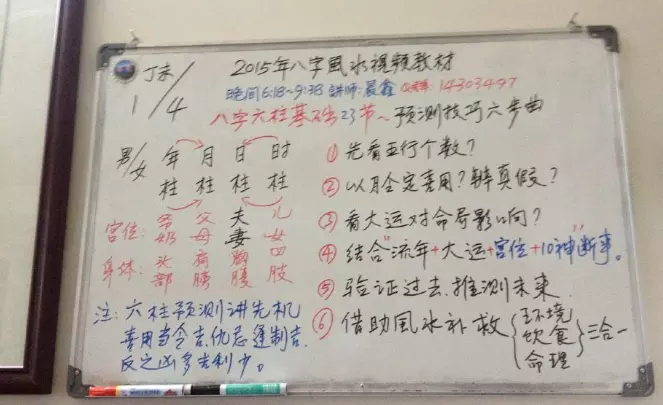 丁未
1/4
2015年八字風水視頻教材
晚间6:18~9:38 讲师:晨鑫
八字六柱基础23节、预测技巧六步曲
男/女 年 月 日 时
柱 柱 柱 柱
宫位: 爷奶 父母 夫妻 儿女
身体: 头部 胸腹 四肢
注: 六柱预测讲先机
喜用当令吉,仇忌逢制吉
反之凶多吉利少。
① 先看五行个数?
② 以月令定喜用?辩真假?
③ 看大运对命局影响?
④ 结合"流年+大运+宫位+10神"断事。
⑤ 验证过去、推测未来
⑥ 借助風水补救{环境 饮食 命理}三合一